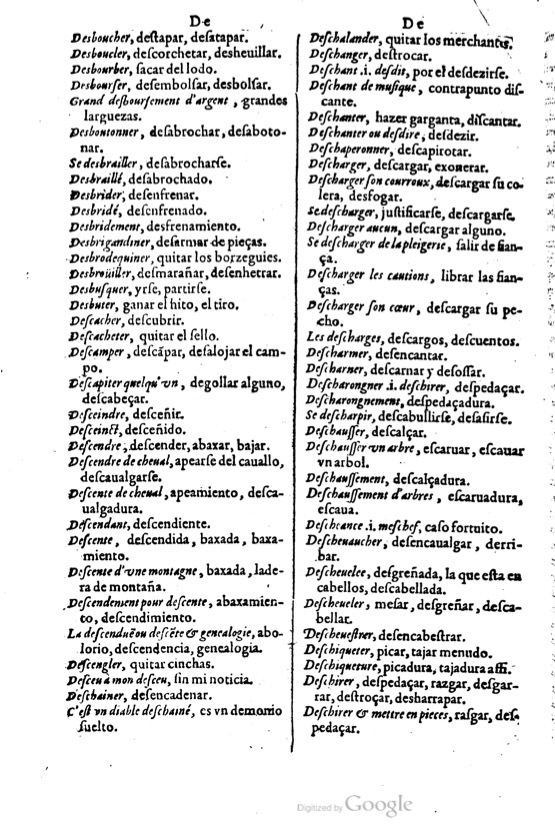 De
Desboucher, deſtapar, deſatapar.
Desboucler, deſcorchetar, desheuillar.
Desbourber, ſacar del lodo.
Desbourſer, deſembolſar, desbolſar.
Grand desbourſement d'argent, grandes
larguezas.
Desboutonner, deſabrochar, deſaboto-
nar.
Se desbrailler, deſabrocharſe.
Desbraillé, deſabrochado.
Desbrider, deſenfrenar.
Desbridé, deſenfrenado.
Desbridement, desfrenamiento.
Desbrigandiner, deſarmar de pieças.
Desbrodequiner, quitar los borzeguies.
Desbroüiller, deſmarañar, deſenhetrar.
Desbuſquer, yrſe, partirſe.
Desbuter, ganar el hito, el tiro.
Deſcacher, deſcubrir.
Deſcacheter, quitar el ſello.
Deſcamper, deſcãpar, deſalojar el cam-
po.
Deſcapiter quelqu'vn, degollar alguno,
deſcabeçar.
Deſceindre, deſceñir.
Deſceinct, deſceñido.
Deſcendre, deſcender, abaxar, bajar.
Deſcendre de cheual, apearſe del cauallo,
deſcaualgarſe.
Deſcente de cheual, apeamiento, deſca-
ualgadura.
Deſcendant, deſcendiente.
Deſcente, deſcendida, baxada, baxa-
miento.
Deſcente d'vne montagne, baxada, lade-
ra de montaña.
Deſcendement pour deſcente, abaxamien-
to, deſcendimiento.
La deſcenduë ou deſcẽte & genealogie, abo-
lorio, deſcendencia, genealogia.
Deſcengler, quitar cinchas.
Deſceu à mon deſceu, ſin mi noticia.
Deſchainer, deſencadenar.
C'eſt vn diable deſchainé, es vn demonio
ſuelto.
De
Deſchalander, quitar los merchantes.
Deſchanger, deſtrocar.
Deſchant .i. deſdit, por el deſdezirſe.
Deſchant de muſique, contrapunto diſ-
cante.
Deſchanter, hazer garganta, diſcantar.
Deſchanter ou deſdire, deſdezir.
Deſchaperonner, deſcapirotar.
Deſcharger, deſcargar, exonerar.
Deſcharger ſon courroux, deſcargar ſu co-
lera, desfogar.
Se deſcharger, juſtificarſe, deſcargarſe.
Deſcharger aucun, deſcargar alguno.
Se deſcharger de la pleigerie, ſalir de fian-
ça.
Deſcharger les cautions, librar las fian-
ças.
Deſcharger ſon cœur, deſcargar ſu pe-
cho.
Les deſcharges, deſcargos, deſcuentos.
Deſcharmer, deſencantar.
Deſcharner, deſcarnar y deſoſſar.
Deſcharongner .i. deſchirer, deſpedaçar.
Deſcharongnement, deſpedaçadura.
Se deſcharpir, deſcabullirſe, deſaſirſe.
Deſchauſſer, deſcalçar.
Deſchauſſer vn arbre, eſcaruar, eſcauar
vn arbol.
Deſchauſſement, deſcalçadura.
Deſchauſſement d'arbres, eſcaruadura,
eſcaua.
Deſcheance .i. meſchef, caſo fortuito.
Deſcheuaucher, deſencaualgar, derri-
bar.
Deſcheuelee, deſgreñada, la que eſta en
cabellos, deſcabellada.
Deſcheueler, meſar, deſgreñar, deſca-
bellar.
Deſcheueſtrer, deſencabeſtrar.
Deſchiqueter, picar, tajar menudo.
Deſchiqueture, picadura, tajadura aſſi.
Deſchirer, deſpedaçar, razgar, deſgar-
rar, deſtroçar, desharrapar.
Deſchirer & mettre en pieces, raſgar, deſ-
pedaçar.
Digitized by Google